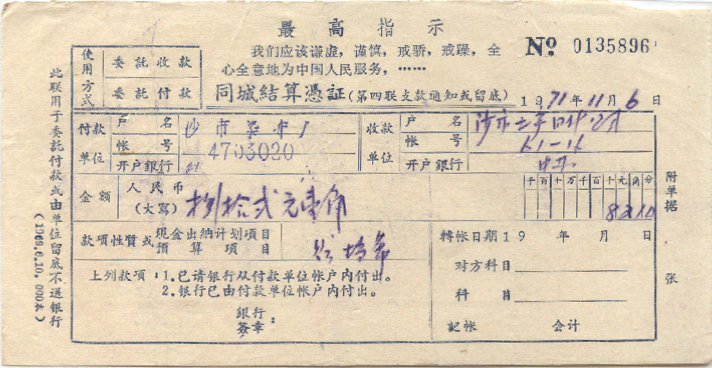 最高指示
我们应该谦虚，谨慎，戒骄，戒躁，全
心全意地为中国人民服务，……
№ 0135896
使用方式
委託收款
委託付款
同城結算憑証(第四联支款通知或留底)
1971年11月6日
付款单位
户名
帐号 4703020
开户銀行
收款单位
户名
帐号 61-16
开户銀行
金額
人民币
(大寫) 捌拾弍元壹角
千百十万千百十元角分
8210
款項性質或
現金出納计划項目
預算項目
轉帐日期 19 年 月 日
对方科目
科目
記帐 会计
上列款項：1.已請銀行从付款单位帐户内付出。
2.銀行已由付款单位帐户内付出。
銀行
簽章：
附单据 张
此联用于委託付款或由单位留底不送銀行